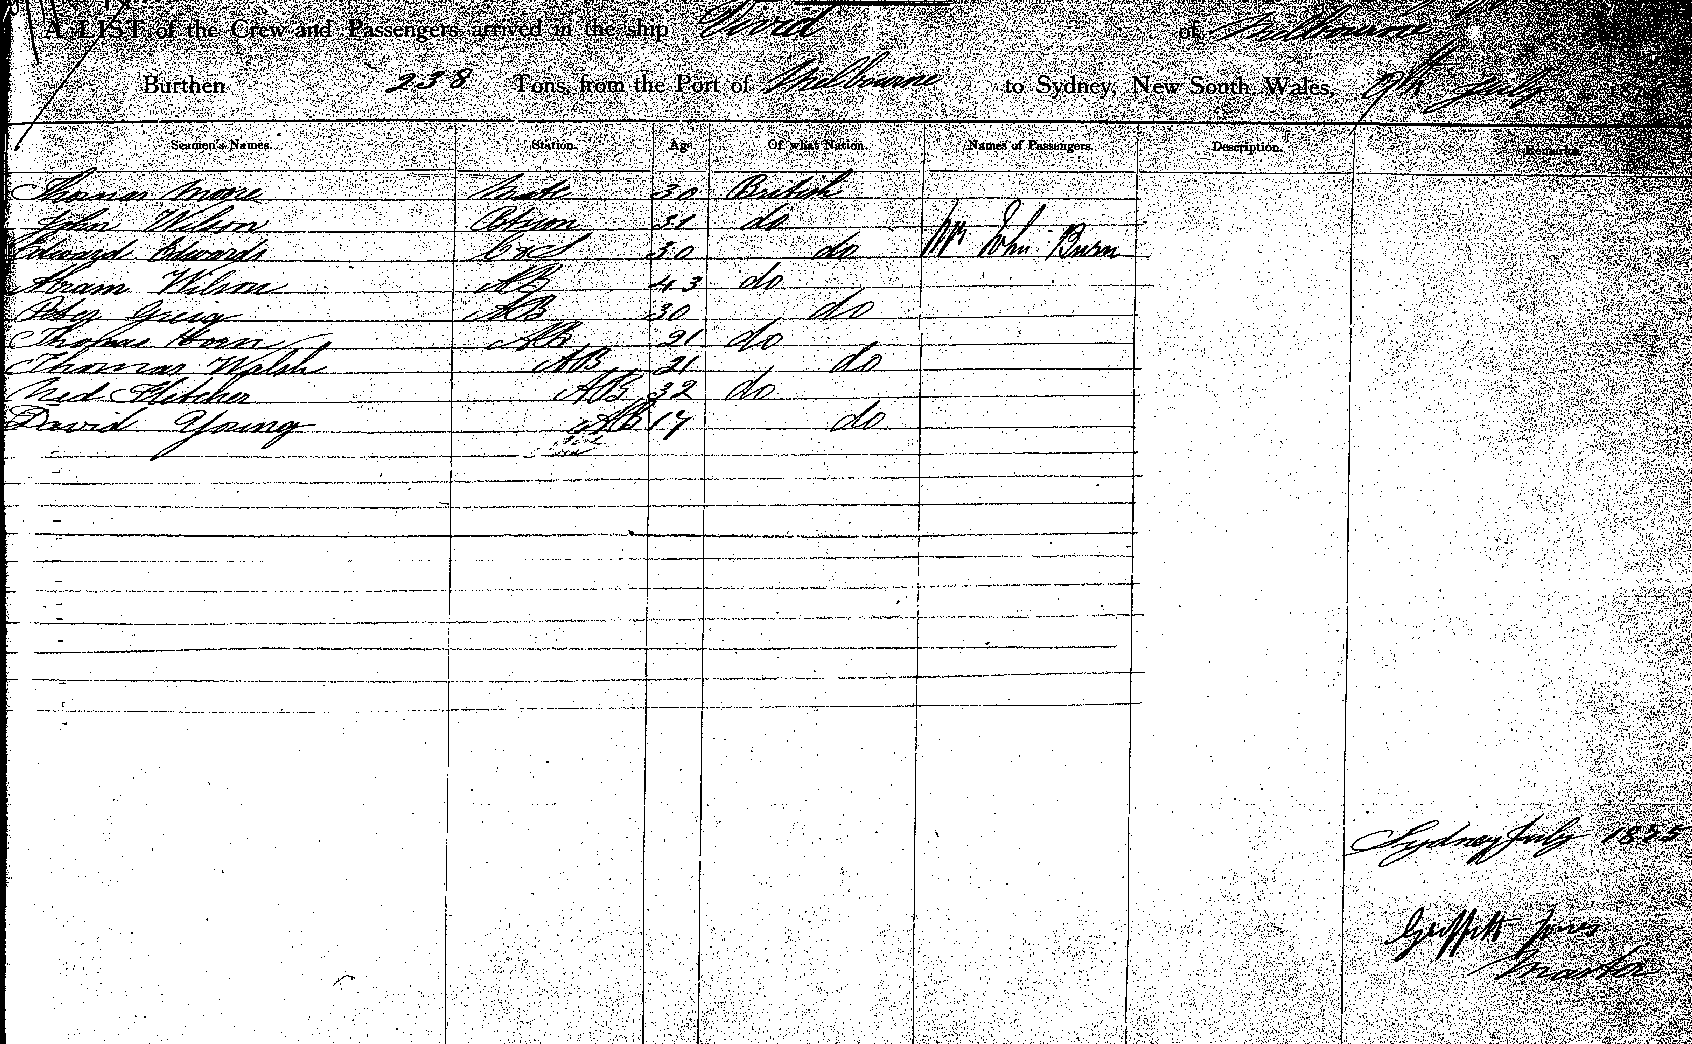 A LIST of the Crew and Passengers arrived in the ship of Melbourne
Burthen 238 Tons, from the Port of Melbourne to Sydney, New South Wales, 9th July
Seamen's Names. Station. Age Of what Nation. Names of Passengers. Description. Remarks
Thomas Moore Mate 30 British
John Wilson 31 do
Edward Edwards C & S 30 do Mr John Burn
Abram Wilson AB 43 do
Peter Greig AB 30 do
Thomas Horn AB 21 do
Thomas Walsh AB 21 do
Ned Fletcher AB 32 do
David Young AB 17 do
Sydney July
Griffith Jones
Master